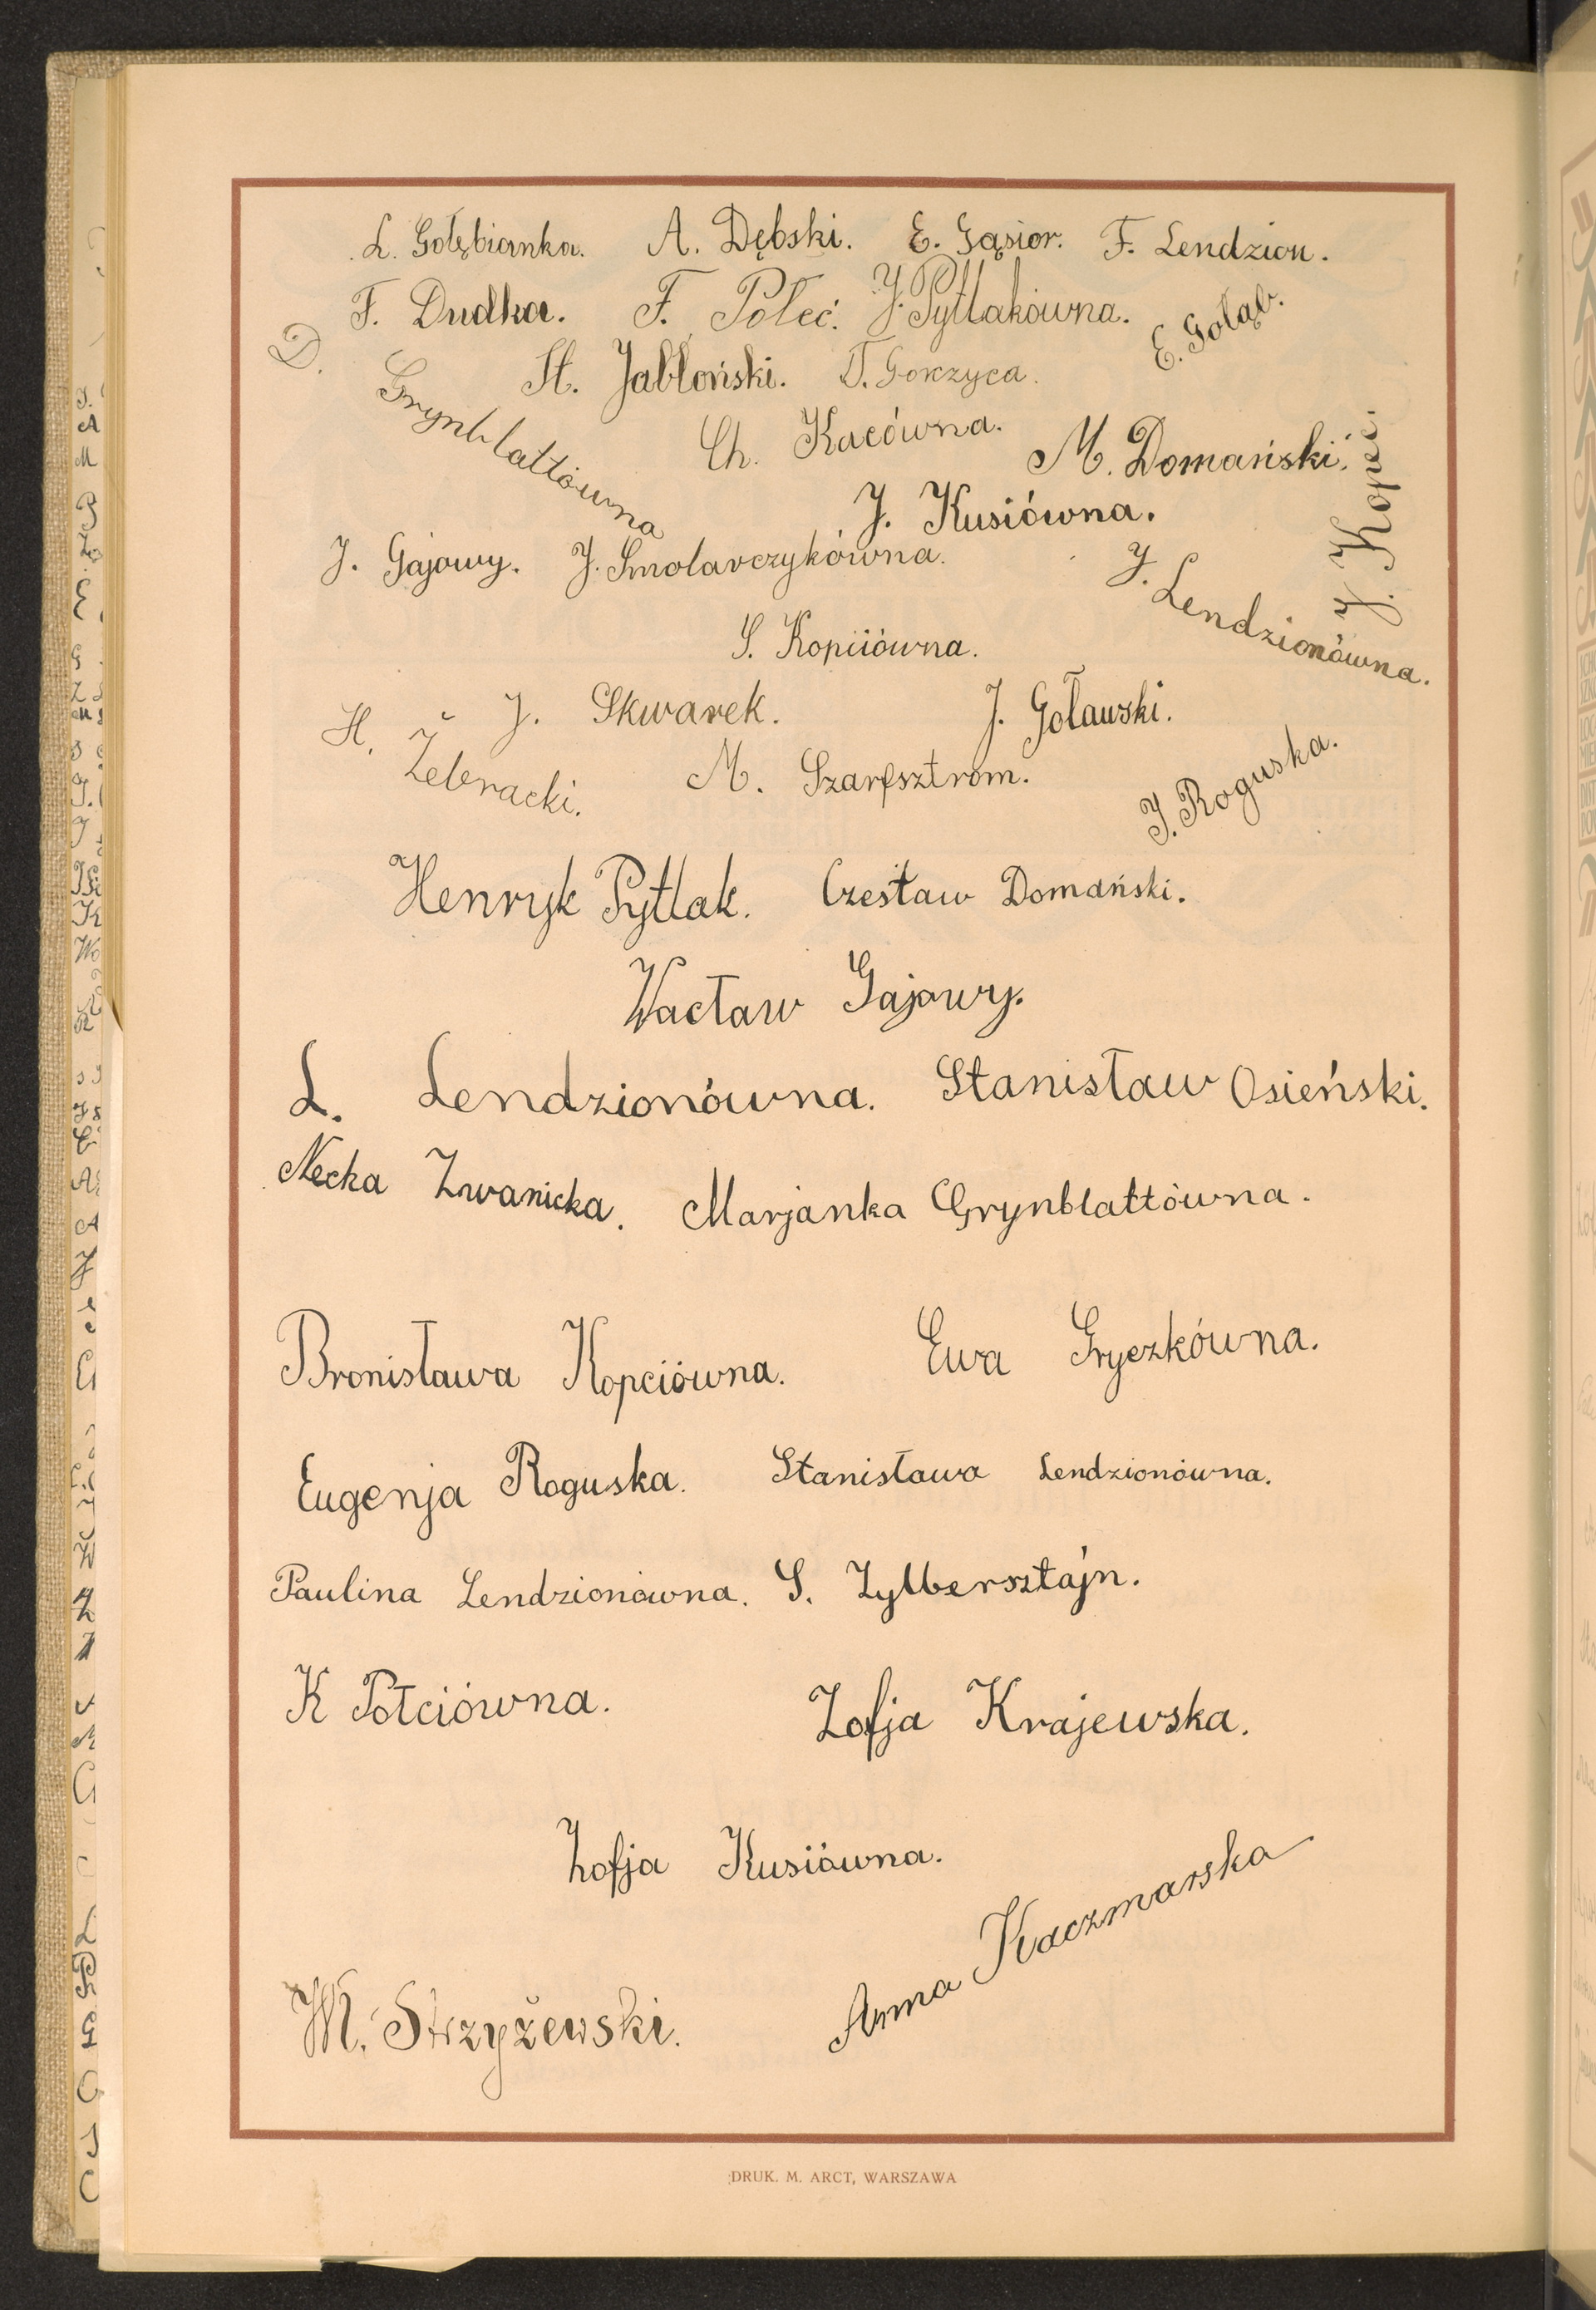 L. Gołębianka. A. Dębski. E. Gąsior. F. Lendzion.
F. Dudka. F. Połeć. J. Pytlakówna. E. Gołąb.
D. Grynblattówna
St. Jabłoński. T. Gorzyca.
Ch. Kacówna. M. Domański. J. Kopeć.
J. Kusiówna.
J. Gajowy. J. Smolarczykówna. J. Lendzionówna.
S. Kopciówna.
J. Skwarek. J. Goławski.
H. Żebracki. M. Szarfsztrom. J. Roguska.
Henryk Pytlak. Czesław Domański.
Wacław Gajowy.
L. Lendzionówna. Stanisław Osieński.
Necka Zwanicka. Marjanka Grynblattówna.
Bronisława Kopciówna. Ewa Gryczkówna.
Eugenja Roguska. Stanisława Lendzionówna.
Paulina Lendzionówna. S. Zylbersztajn.
K Połciówna. Zofja Krajewska.
Zofja Kusiówna.
Anna Kaczmarska
M. Strzyżewski.
DRUK. M. ARCT, WARSZAWA